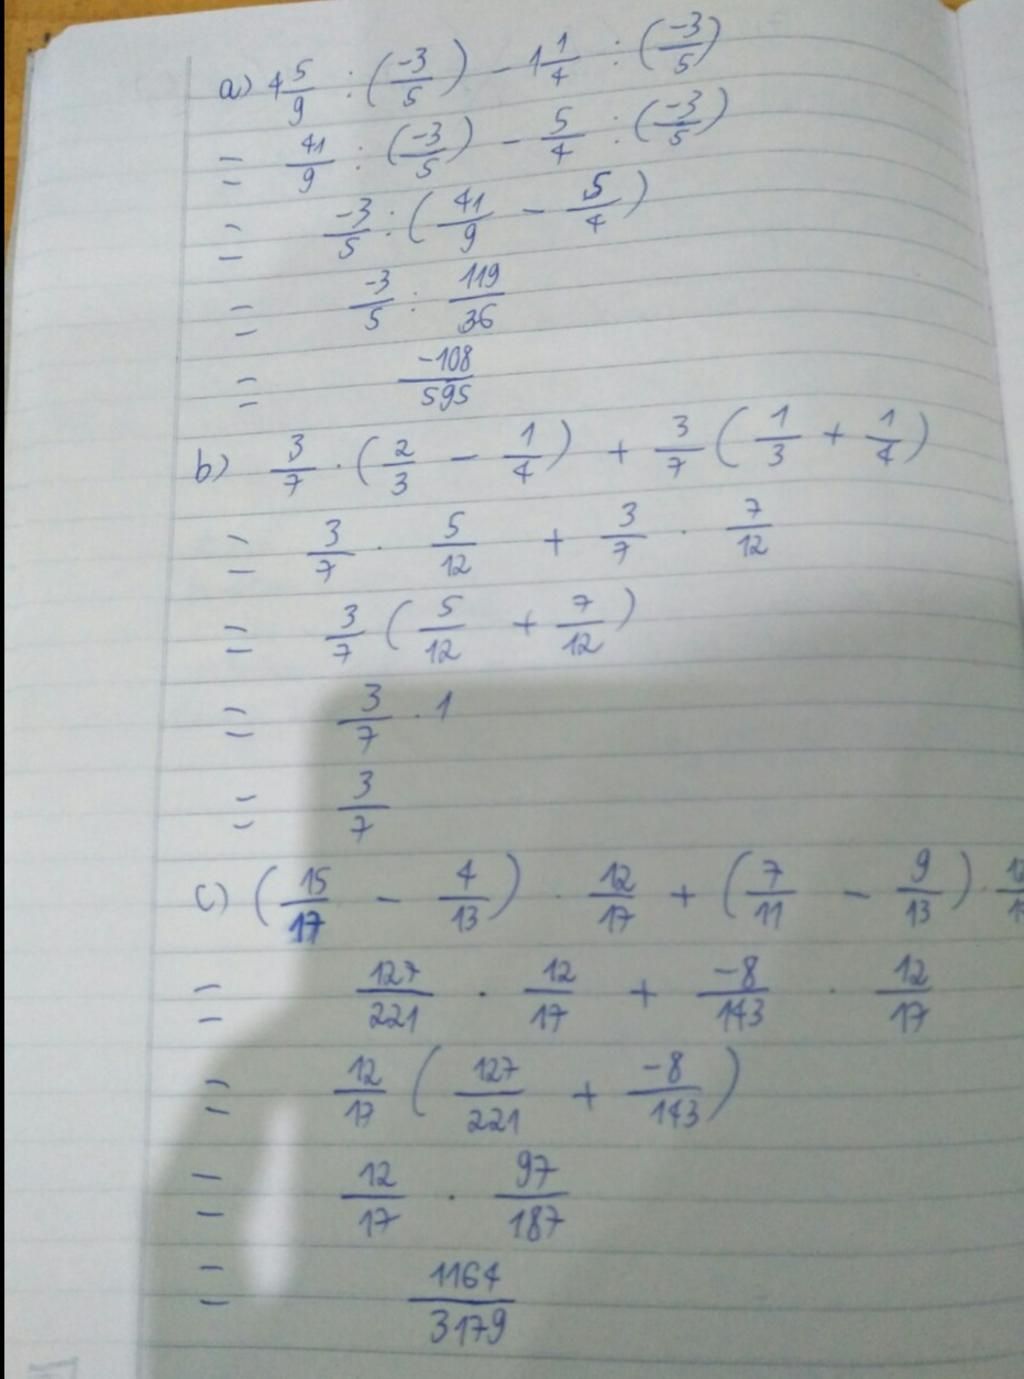 a) 4 5/9 : (-3/5) - 1 1/4 : (-3/5)
= 41/9 : (-3/5) - 5/4 : (-3/5)
= -3/5 : (41/9 - 5/4)
= -3/5 : 119/36
= -108/595
b) 3/7 . (2/3 - 1/4) + 3/7 (1/3 + 1/4)
= 3/7 . 5/12 + 3/7 . 7/12
= 3/7 (5/12 + 7/12)
= 3/7 . 1
= 3/7
c) (15/17 - 4/13) . 12/17 + (7/11 - 9/13) .
= 127/221 . 12/17 + -8/143 . 12/17
= 12/17 (127/221 + -8/143)
= 12/17 . 97/187
= 1164/3179